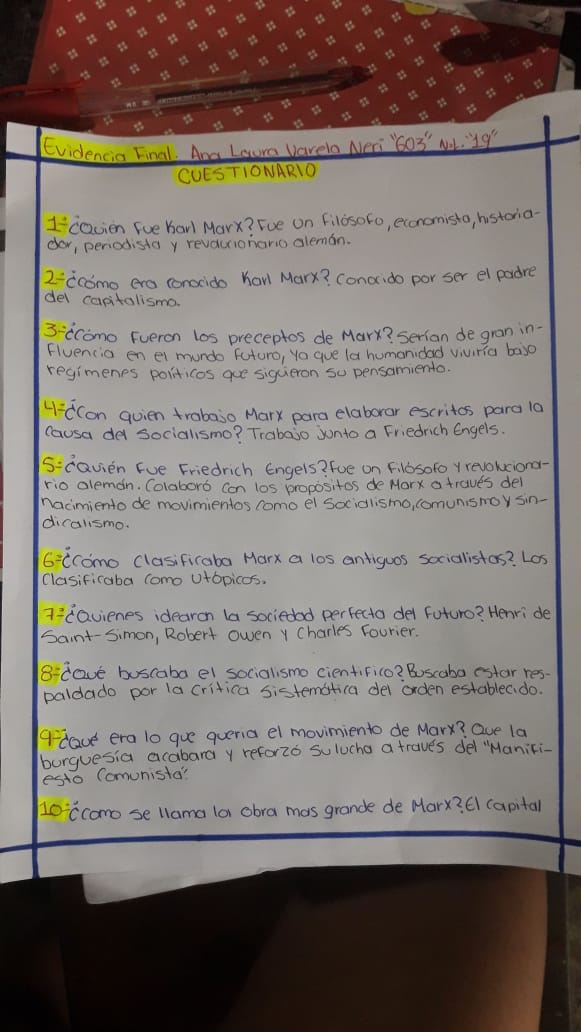 Evidencia Final. Ana Laura Varela Neri "603" N.L. "19"
CUESTIONARIO
1-¿Quién fue Karl Marx? Fue un filósofo, economista, historia-
dor, periodista y revolucionario alemán.
2-¿Cómo era conocido Karl Marx? Conocido por ser el padre
del capitalismo.
3-¿Cómo fueron los preceptos de Marx? Serían de gran in-
fluencia en el mundo futuro, ya que la humanidad viviría bajo
regímenes políticos que siguieron su pensamiento.
4-¿Con quien trabajo Marx para elaborar escritos para la
causa del Socialismo? Trabajo junto a Friedrich Engels.
5-¿Quién fue Friedrich Engels? Fue un filósofo y revoluciona-
rio alemán. Colaboró con los propósitos de Marx a través del
nacimiento de movimientos como el socialismo, comunismo y sin-
dicalismo.
6-¿Cómo clasificaba Marx a los antiguos socialistas? Los
clasificaba como utópicos.
7-¿Quienes idearon la sociedad perfecta del futuro? Henri de
Saint-Simon, Robert Owen y Charles Fourier.
8-¿Qué buscaba el socialismo cientifico? Buscaba estar res-
paldado por la crítica sistemática del orden establecido.
9-¿Qué era lo que queria el movimiento de Marx? Que la
burguesía acabara y reforzó su lucha a través del "Manifi-
esto Comunista".
10-¿Como se llama la obra mas grande de Marx? El capital